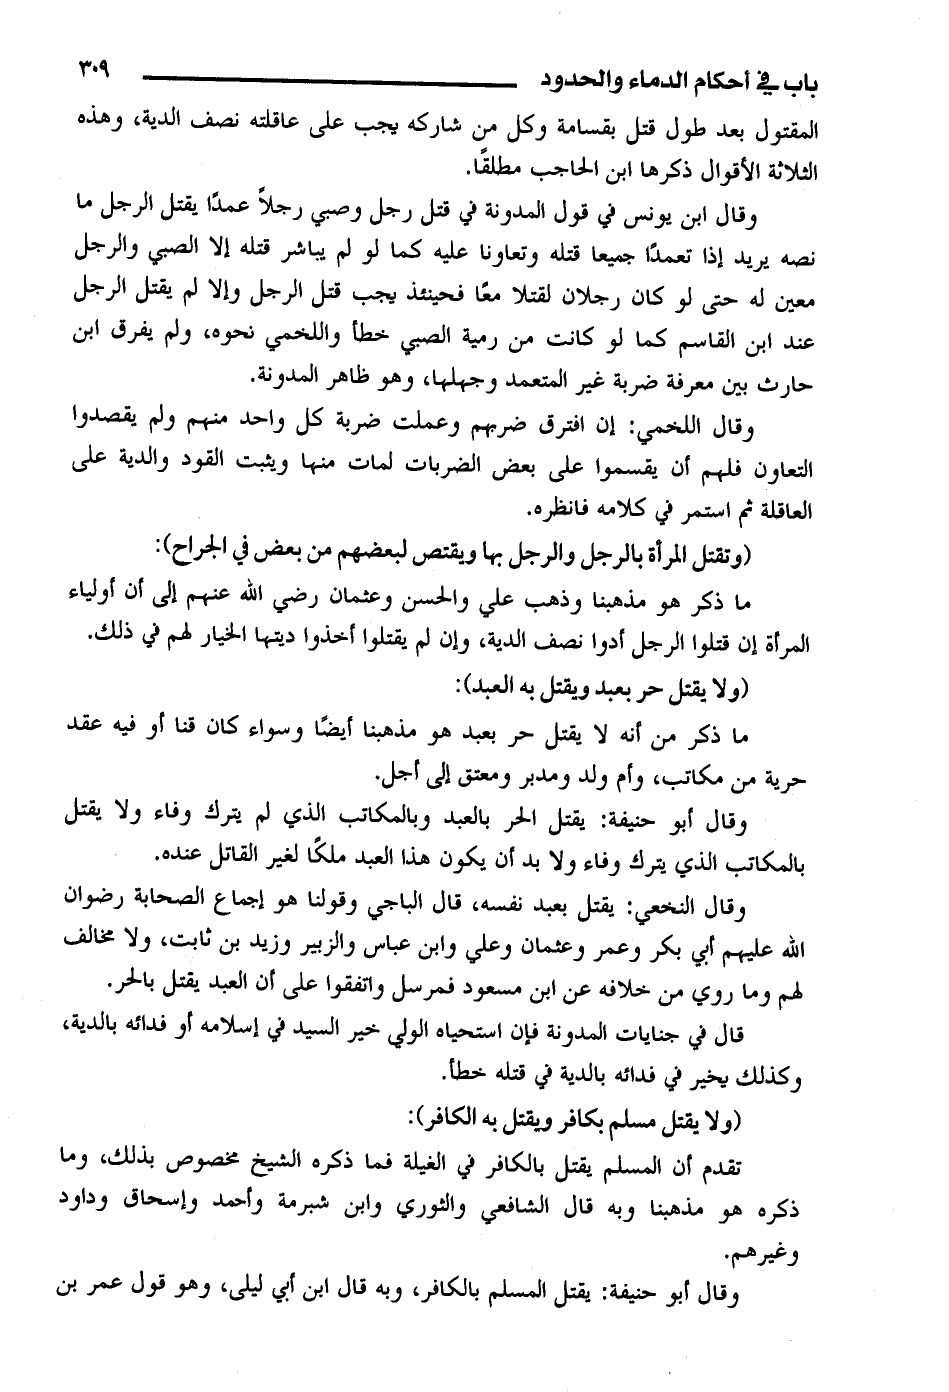 باب في أحكام الدماء والحدود ٣٠٩
المقتول بعد طول قتل بقسامة وكل من شاركه يجب على عاقلته نصف الدية، وهذه
الثلاثة الأقوال ذكرها ابن الحاجب مطلقًا.
وقال ابن يونس في قول المدونة في قتل رجل وصبي رجلاً عمدًا يقتل الرجل ما
نصه يريد إذا تعمدًا جميعا قتله وتعاونا عليه كما لو لم يباشر قتله إلا الصبي والرجل
معين له حتى لو كان رجلان لقتلا معًا فحينئذ يجب قتل الرجل وإلا لم يقتل الرجل
عند ابن القاسم كما لو كانت من رمية الصبي خطأ واللخمي نحوه، ولم يفرق ابن
حارث بين معرفة ضربة غير المتعمد وجهلها، وهو ظاهر المدونة.
وقال اللخمي: إن افترق ضربهم وعملت ضربة كل واحد منهم ولم يقصدوا
التعاون فلهم أن يقسموا على بعض الضربات لمات منها ويثبت القود والدية على
العاقلة ثم استمر في كلامه فانظره.
(وتقتل المرأة بالرجل والرجل بها ويقتص لبعضهم من بعض في الجراح):
ما ذكر هو مذهبنا وذهب علي والحسن وعثمان رضي الله عنهم إلى أن أولياء
المرأة إن قتلوا الرجل أدوا نصف الدية، وإن لم يقتلوا أخذوا ديتها الخيار لهم في ذلك.
(ولا يقتل حر بعبد ويقتل به العبد):
ما ذكر من أنه لا يقتل حر بعبد هو مذهبنا أيضًا وسواء كان قنا أو فيه عقد
حرية من مكاتب، وأم ولد ومدبر ومعتق إلى أجل.
وقال أبو حنيفة: يقتل الحر بالعبد وبالمكاتب الذي لم يترك وفاء ولا يقتل
بالمكاتب الذي يترك وفاء ولا بد أن يكون هذا العبد ملكًا لغير القاتل عنده.
وقال النخعي: يقتل بعبد نفسه، قال الباجي وقولنا هو إجماع الصحابة رضوان
الله عليهم أبي بكر وعمر وعثمان وعلي وابن عباس والزبير وزيد بن ثابت، ولا مخالف
لهم وما روي من خلافه عن ابن مسعود فمرسل واتفقوا على أن العبد يقتل بالحر.
قال في جنايات المدونة فإن استحياه الولي خير السيد في إسلامه أو فدائه بالدية،
وكذلك يخير في فدائه بالدية في قتله خطأ.
(ولا يقتل مسلم بكافر ويقتل به الكافر):
تقدم أن المسلم يقتل بالكافر في الغيلة فما ذكره الشيخ مخصوص بذلك، وما
ذكره هو مذهبنا وبه قال الشافعي والثوري وابن شبرمة وأحمد وإسحاق وداود
وغيرهم.
وقال أبو حنيفة: يقتل المسلم بالكافر، وبه قال ابن أبي ليلى، وهو قول عمر بن